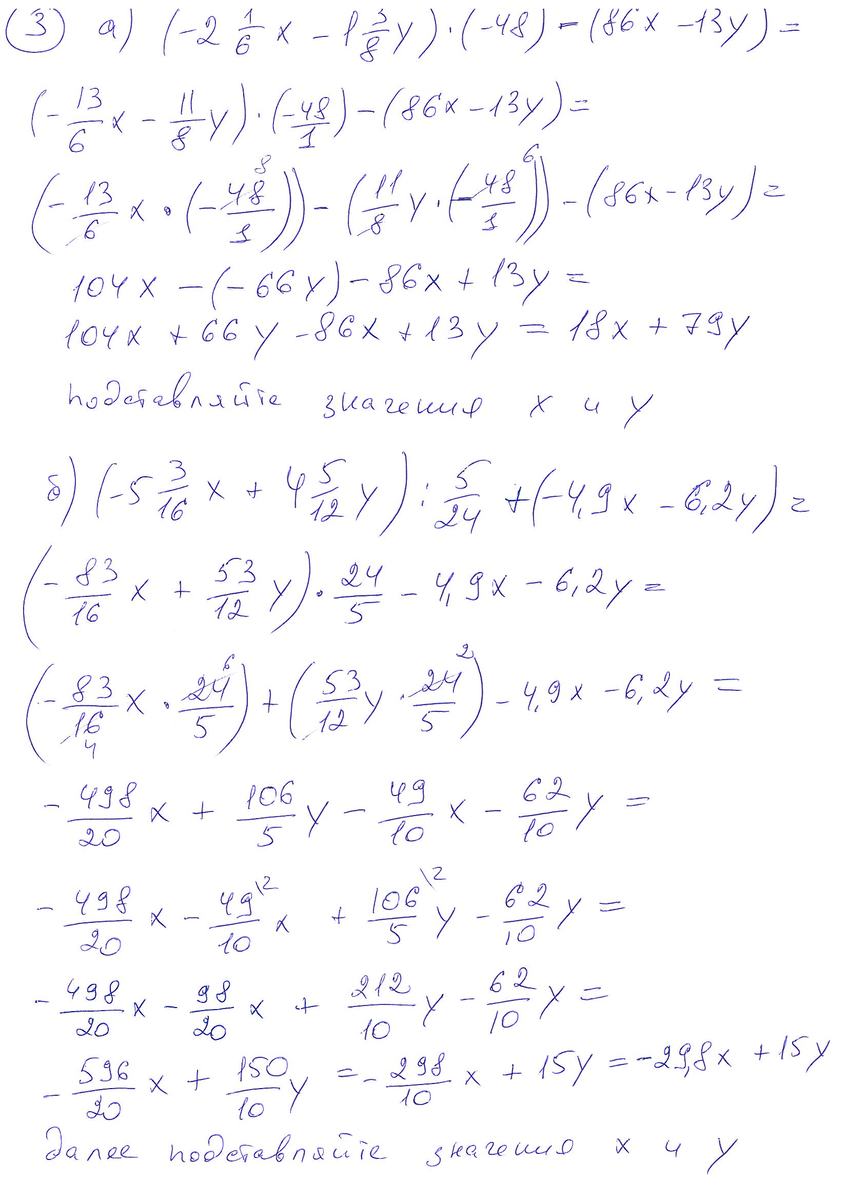 3 а) (-2 1/6 x - 1 3/8 y) · (-48) - (86x - 13y) =
(-13/6 x - 11/8 y) · (-48/1) - (86x - 13y) =
(-13/6 x · (-48/1)) - (11/8 y · (-48/1)) - (86x - 13y) =
104x - (-66y) - 86x + 13y =
104x + 66y - 86x + 13y = 18x + 79y
подставляйте значения x и y
б) (-5 3/16 x + 4 5/12 y) : 5/24 + (-4,9x - 6,2y) =
(-83/16 x + 53/12 y) · 24/5 - 4,9x - 6,2y =
(-83/16 x · 24/5) + (53/12 y · 24/5) - 4,9x - 6,2y =
-498/20 x + 106/5 y - 49/10 x - 62/10 y =
-498/20 x - 49\2/10 x + 106\2/5 y - 62/10 y =
-498/20 x - 98/20 x + 212/10 y - 62/10 y =
-596/20 x + 150/10 y = -298/10 x + 15y = -29,8x + 15y
далее подставляйте значения x и y